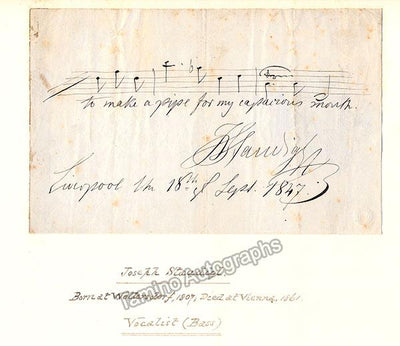 to make a pipe for my capacious mouth.
JStaudigl
Liverpool the 18th of Sept. 1847.
Tamino Autographs
Joseph Staudigl
Born at Wollersdorf, 1807, Died at Vienna, 1861.
Vocalist (Bass)